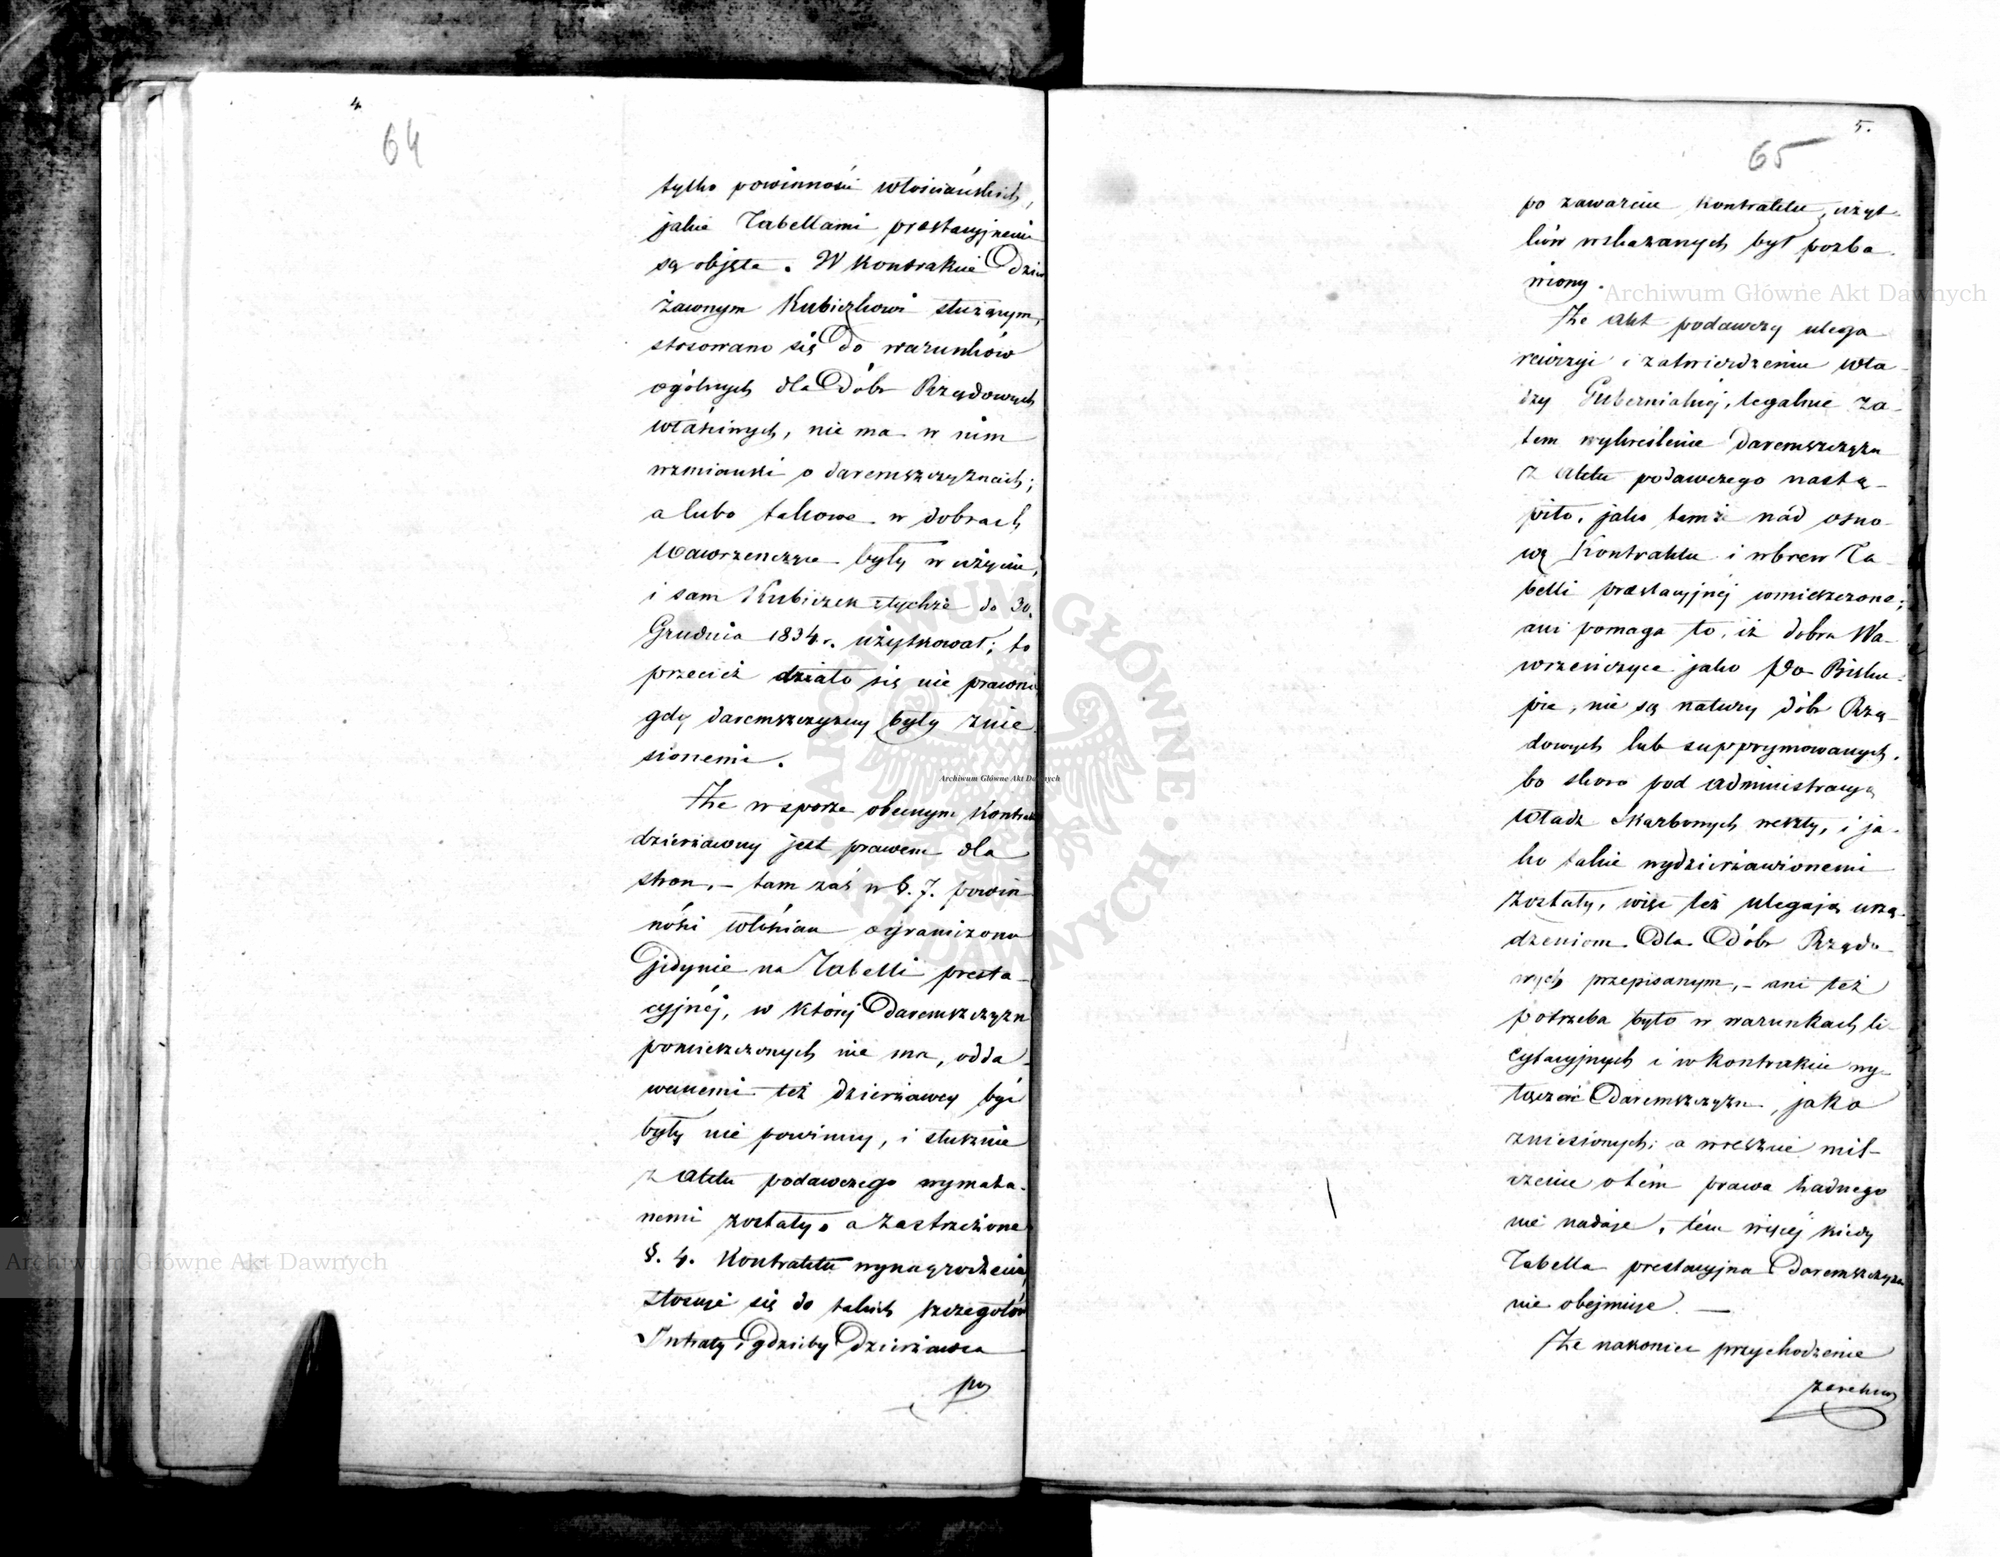 4
64
tylko powinności włościańskich,
jakie Tabellami prestacyjnemi
są objęte. W Kontrakcie Dzier
żawnym Kubiczkowi służącym,
stosowano się do warunków
ogólnych dla Dóbr Rządowych
właściwych, nie ma w nim
wzmianki o daremszczyznach;
a lubo takowe w dobrach
Wawrzenczyce były w użyciu,
i sam Kubiczek tychże do 30.
Grudnia 1834 r. użytkował; to
przecież działo się nie prawnie
gdy daremszczyzny były znie
sionemi.
Że w sporze obecnym Kontrakt
dzierżawny jest prawem dla
stron, – tam zaś w §. 7. powin
ności włościan ograniczono
jedynie na Tabelli presta-
cyjnéj, w któréj Daremszczyzn
pomieszczonych nie ma, odda-
wanemi też dzierżawcy być
były nie powinny, i słusznie
z Aktu podawczego wymaza-
nemi zostały, a zastrzeżone
§. 4. Kontraktu wynagrodzenia,
stosuje się do takich szczegółów
Intraty, gdzieby Dzierżawca
po
5.
65
po zawarciu Kontraktu, użyt-
ków wskazanych był pozba-
wiony.
Że Akt podawczy ulega
rewizyi i zatwierdzeniu Wła-
dzy Gubernialnéj, legalnie za-
tem wykreślenie Daremszczyzn
z Aktu podawczego nastą-
piło, jako tamże nád osno-
wę Kontraktu i wbrew Ta-
belli prestacyjnéj umieszczone;
ani pomaga to, iż dobra Wa-
wrzeńczyce jako po Bisku-
pie, nie są natury dóbr Rzą-
dowych lub supprymowanych,
bo skoro pod administracyą
Władz Skarbowych weszły, i ja-
ko takie wydzierżawionemi
zostały, więc też ulegają urzą-
dzeniom dla Dóbr Rządo-
wych przepisanym, – ani też
potrzeba było w warunkach li-
cytacyjnych i w kontrakcie wy-
łączać Daremszczyzn, jako
zniesionych; a wreszcie mil-
czenie o tém prawa żadnego
nie nadaje, tém więcéj kiedy
Tabella prestacyjna Daremszczyzn
nie obejmuje. —
Że nakoniec przychodzenie